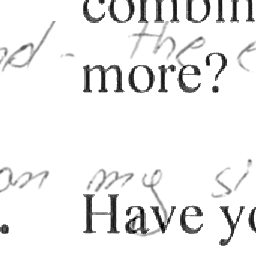 combin
nd - the e
more?
on my si
. Have yo